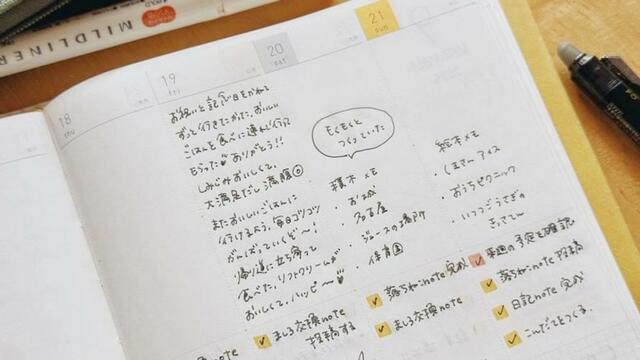 MILDLINER
18
thu
19
fri
お祝いと記念日をかねて
ずっと行きたかった、おいしい
ごはんを食べに連れて行って
もらった ありがとう!!
しみじみおいしくて、
大満足だし満腹
またおいしいごはんに
行けるよう、毎日コツコツ
がんばっていくぞ〜!
帰り道に立ち寄って
食べた、ソフトクリームが
おいしくて、ハッピ〜
note
ましろ交換note
投稿する
20
sat
もくもくと
つくっていた
積木メモ
・お城
・名古屋
・ジュースの場所
・保育園
note完成
ましろ交換note
21
sun
絵本メモ
・くまさんアイス
・おうちピクニック
・いつつごうさぎの
きっさてん
来週の予定を確認
note投稿
日記note完成
こんだてをつくる。